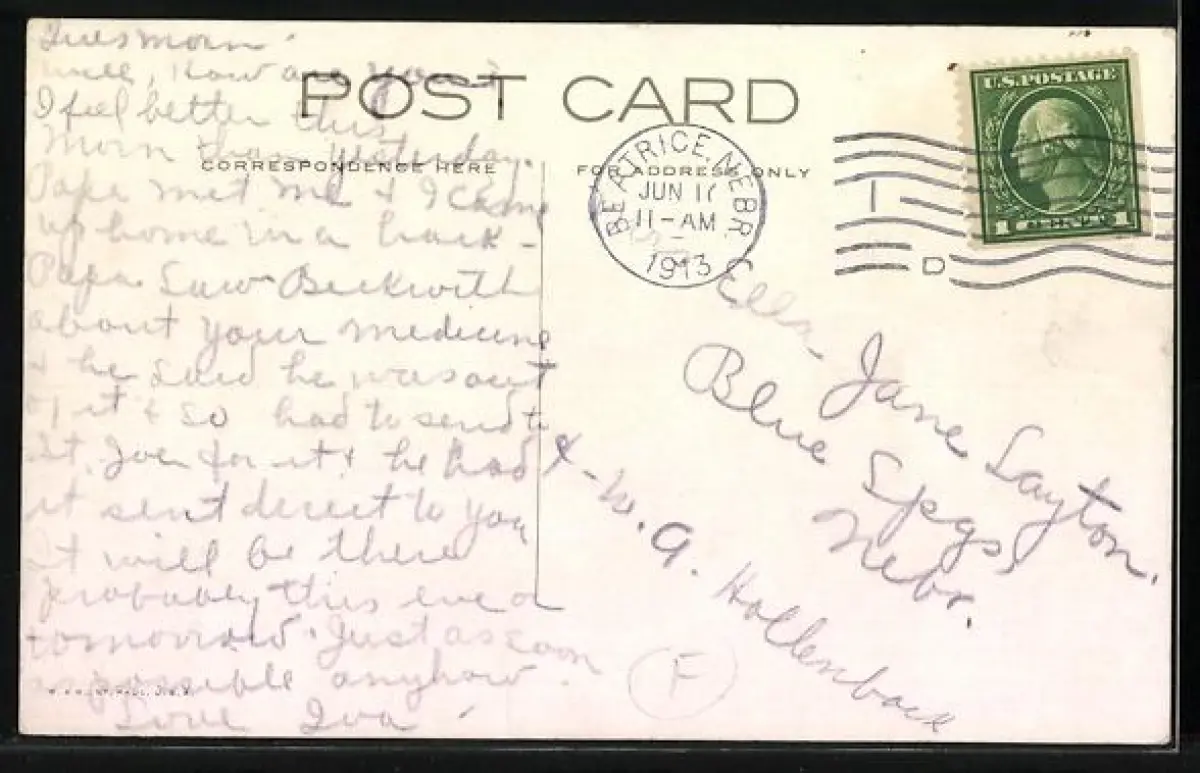 Tues morn
Well, How are you?
I feel better this
Morn than yesterday.
Papa met me & I came
up home in a hack -
Papa Saw Beckwith
about your medicine
& he said he was out
of it & so had to send to
St. Joe for it & he had
it sent direct to you
It will be there
probably this eve or
tomorrow. Just as soon
as possible anyhow.
Love Iva
POST CARD
CORRESPONDENCE HERE
FOR ADDRESS ONLY
BEATRICE, NEBR.
JUN 17
11-AM
1913
D
U.S. POSTAGE
1 CENT 1
Jane Layton.
Blue Spgs,
Nebr.
W. A. Hollenback
F